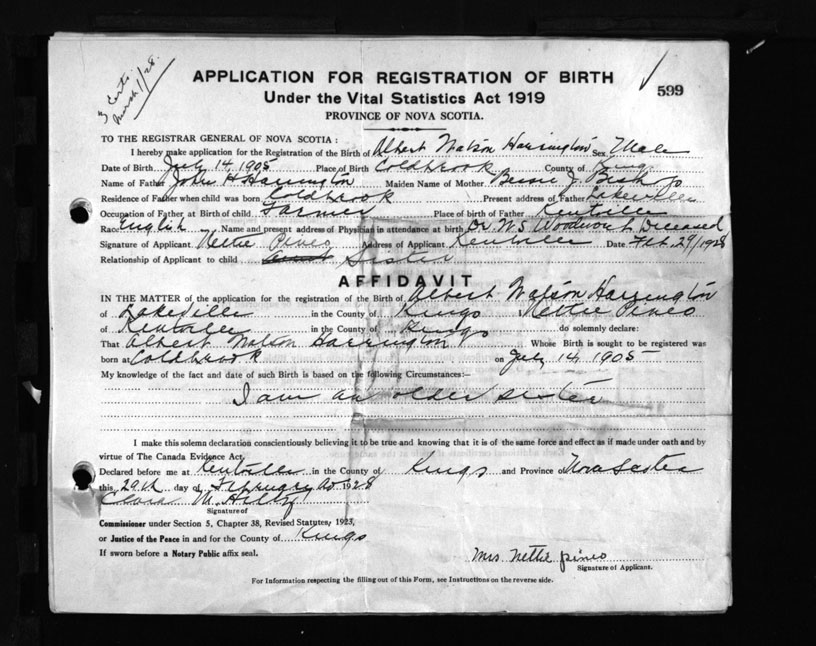 3 Certs.
March 1/28.
APPLICATION FOR REGISTRATION OF BIRTH
599
Under the Vital Statistics Act 1919
PROVINCE OF NOVA SCOTIA.
TO THE REGISTRAR GENERAL OF NOVA SCOTIA :
I hereby make application for the Registration of the Birth of Albert Watson Harrington Sex Male
Date of Birth July 14, 1905 Place of Birth Coldbrook County of Kings
Name of Father John H Harrington Maiden Name of Mother J. Bishop
Residence of Father when child was born Coldbrook Present address of Father Lakeville
Occupation of Father at Birth of child Farmer Place of birth of Father Kentville
Race English Name and present address of Physician in attendance at birth Dr W S Woodworth Deceased
Signature of Applicant Nettie Pineo Address of Applicant Kentville Date Feb. 29/1928
Relationship of Applicant to child Sister
AFFIDAVIT
IN THE MATTER of the application for the registration of the Birth of Albert Watson Harrington
of Lakeville in the County of Kings Nettie Pineo
of Kentville in the County of Kings do solemnly declare:
That Albert Watson Harrington Whose Birth is sought to be registered was
born at Coldbrook on July 14, 1905
My knowledge of the fact and date of such Birth is based on the following Circumstances:—
I am an older sister
I make this solemn declaration conscientiously believing it to be true and knowing that it is of the same force and effect as if made under oath and by
virtue of The Canada Evidence Act.
Declared before me at Kentville in the County of Kings and Province of Nova Scotia
this 29th day of February AD 1928
Clara M.
Signature of
Commissioner under Section 5, Chapter 38, Revised Statutes, 1923,
or Justice of the Peace in and for the County of Kings
If sworn before a Notary Public affix seal.
Mrs Nettie Pineo
Signature of Applicant.
For Information respecting the filling out of this Form, see Instructions on the reverse side.